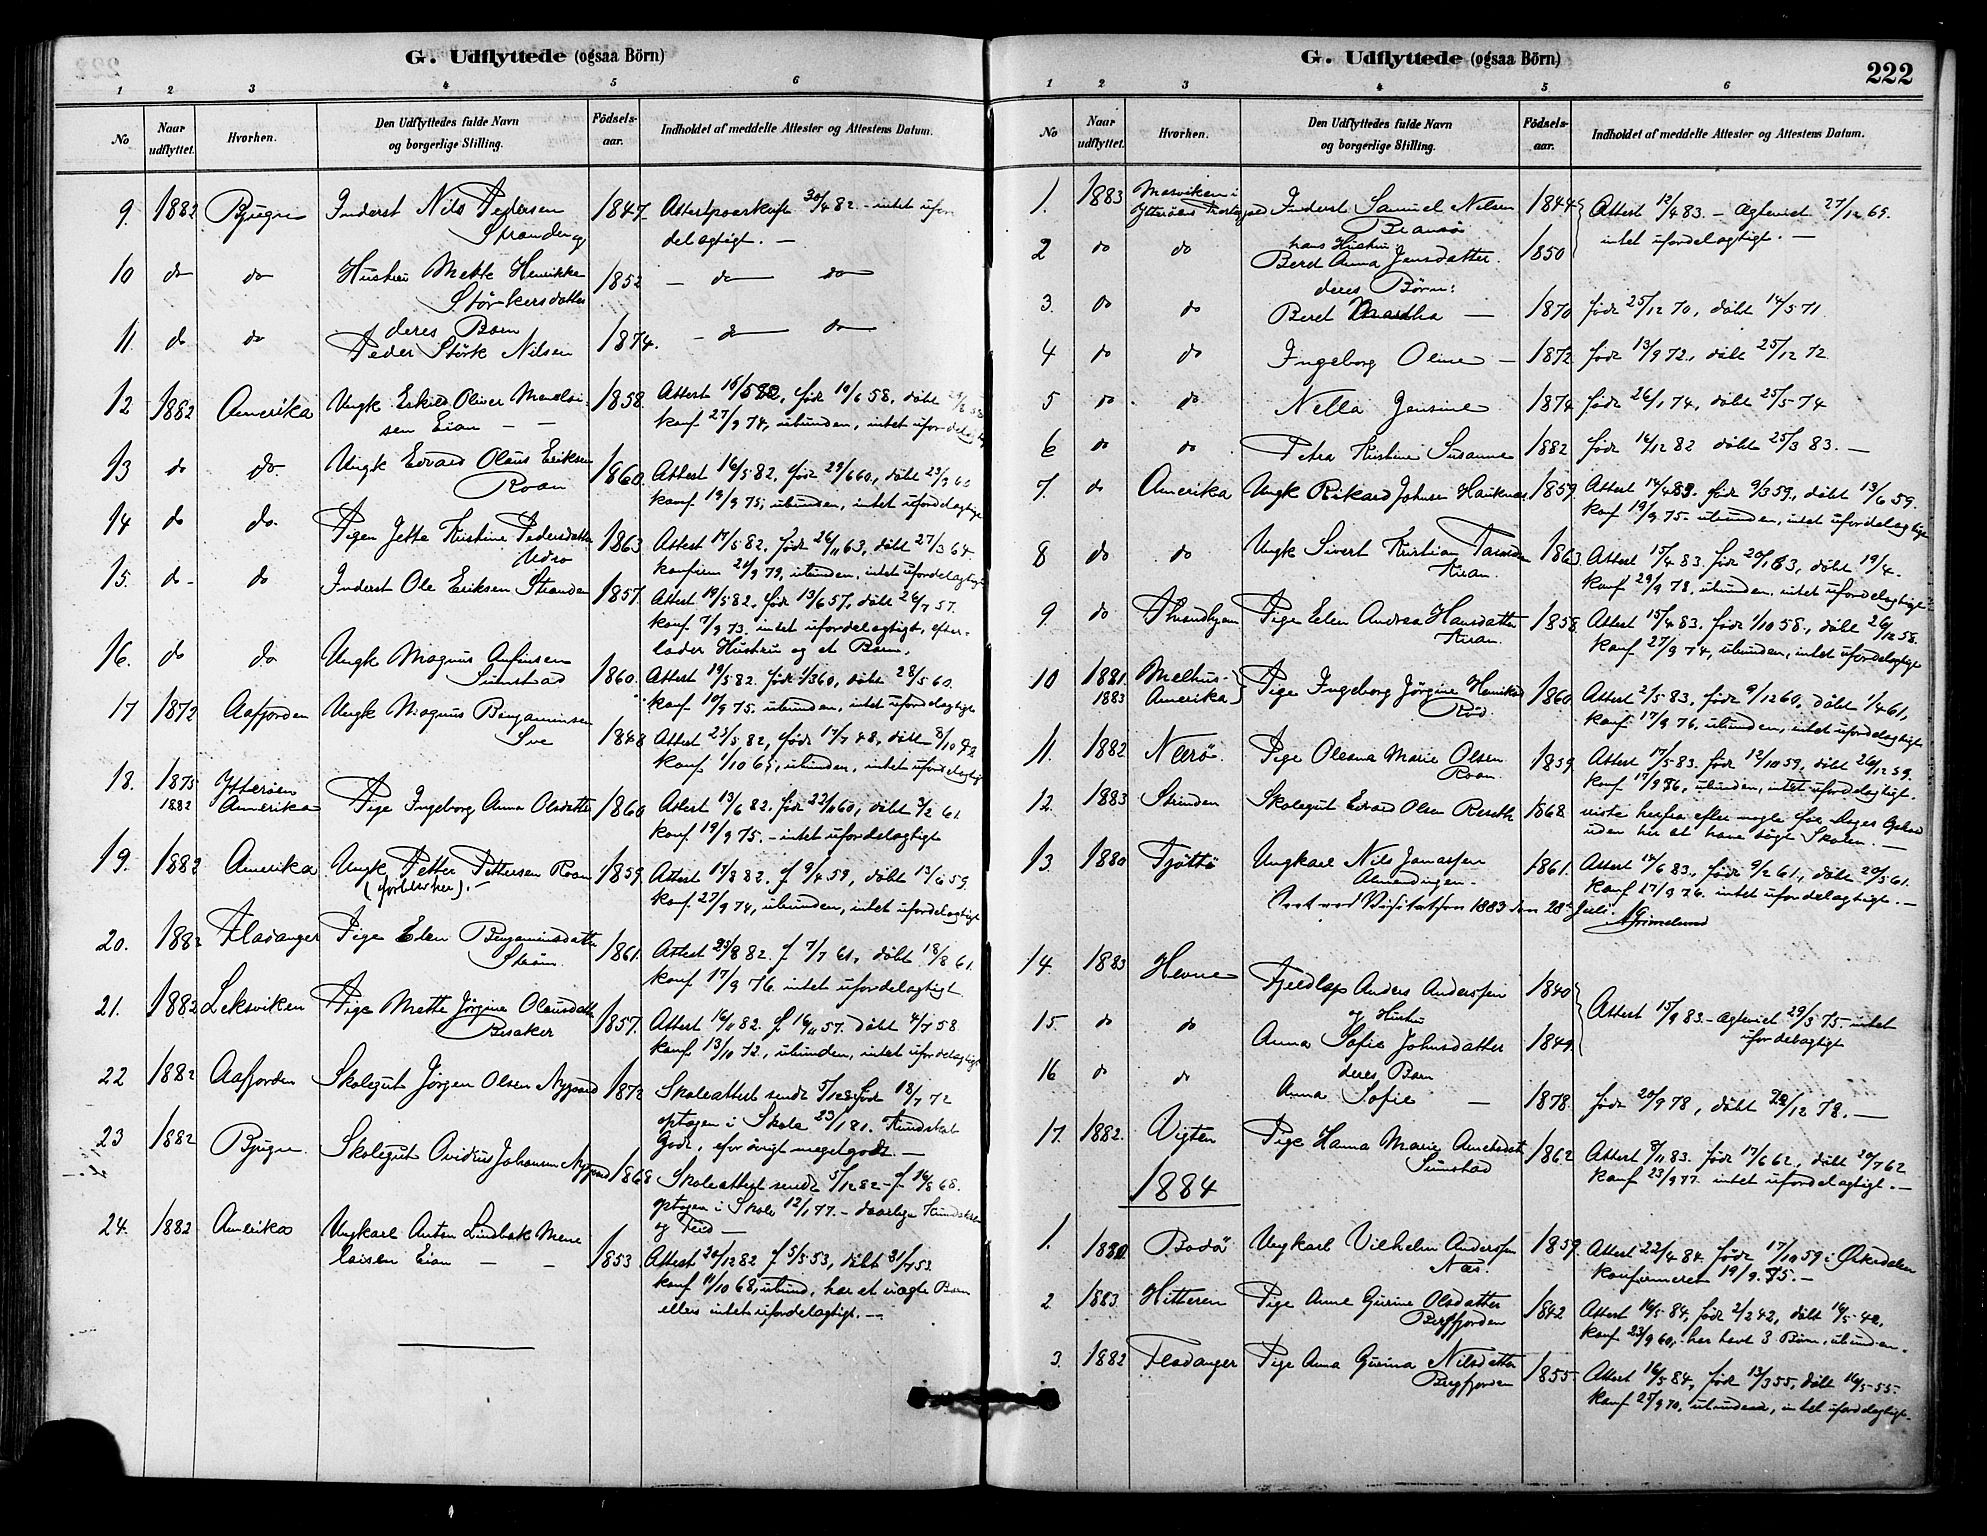 G. Udflyttede (ogsaa Börn)
1 2 3 4 5 6
No Naar udflyttet. Hvorhen. Den Udflyttedes fulde Navn og borgerlige Stilling. Födsels-aar. Indholdet af meddelte Attester og Attestens Datum.
9. 1882 Bjugn Inderst Nils Pedersen 1847. Attest 30/4 82. - intet ufor
Strander og delagtigt. —
10 do do Hustru Mette Henrikke 1852 — do — do
Störkersdatter
11. do do deres Barn
Peder Störk Nilsen 1874. - do — do
12 1882 Amerika Ungk Eskild Oliver Menelai- 1858. Attest 16/5 82, född 19/6 58, döbt
sen Eian — — konf 27/9 74, ubunden, intet ufordelagtigt
13 do do Ungk Edvard Olaus Eriksen 1860. Attest 16/5 82, född 29/6 60, döbt 23/9 60
Roan konf 19/9 75, ubunden, intet ufordelagtigt
14 do do Pigen Jette Kristine Pedersdatter 1863 Attest 17/5 82. född 26/11 63, döbt 27/3 64
konfirm 20/9 79, ubunden, intet ufordelagtigt
15. do do Inderst Ole Eriksen Strander 1857. Attest 19/5 82, född 13/6 57, döbt 26/7 57.
konf 7/9 73. intet ufordelagtigt, efter-
lader Hustru og et Barn.
16. do do Ungk Magnus
Sumstad 1860. Attest 19/5 82. född 1/3 60, döbt 28/5 60.
konf 19/9 75. ubunden, intet ufordelagtigt
17 1872 Aafjorden Ungk Magnus Benjaminsen
Sve 1848 Attest 23/5 82, född 17/7 48, döbt 8/10 48
konf 1/10 65, ubunden, intet ufordelagtigt
18. 1875 Ytteröen
1882 Amerika Pige Ingeborg Anna Olsdatter 1860 Attest 13/6 82. född 22/11 60, döbt 3/2 61
konf 19/9 75. - intet ufordelagtigt
19. 1882 Amerika Ungk Petter Pettersen Roan 1859 Attest 17/8 82. f 9/4 59, döbt 13/6 59.
konf. 27/9 74, ubunden, intet ufordelagtigt
20. 1882 Fladanger Pige Elen Benjaminsdatter
Ström 1861. Attest 23/8 82. f 7/7 61, döbt 18/8 61.
konf 17/9 76. intet ufordelagtigt.
21. 1882 Leksviken Pige Mette Jörgine Olausdatter
Besaker 1857. Attest 16/11 82. f. 16/11 57. döbt 4/7 58.
konf 13/10 72., ubunden, intet ufordelagtigt
22 1882 Aafjorden Skolegut Jörgen Olsen Nygaard 1872 Skoleattest sendt 5/12 82 född 18/7 72
optagen i Skole 23/1 81. Kundskab
Godt, forövrigt megetgodt —
23 1882 Bjugn. Skolegut Ovidius Johansen Nygaard 1868 Skoleattest sendt 5/12 82 - f 16/8 68.
optagen i Skole 12/1 77. - daarlige Kundskaber
og Flid —
24. 1882 Amerika Ungkarl Anton Lindbak Mene
laisen Eian — — 1853 Attest 20/12 82 f 5/5 53, döbt 31/7 53
konf 11/10 68, ubund, har et uægte Barn
ellers intet ufordelagtigt. —
G. Udflyttede (ogsaa Börn)
222
1 2 3 4 5 6
No Naar udflyttet. Hvorhen. Den Udflyttedes fulde Navn og borgerlige Stilling. Födsels-aar. Indholdet af meddelte Attester og Attestens Datum.
1. 1883 Mosviken i
Ytteröens Inderst Samuel Nilsen 1844 Attest 12/4 83. - Ægteviet 27/12 69.
intet ufordelagtigt. —
2 do do hans Hustru
Beret Anna Jensdatter. 1850
deres Börn:
3. do do Beret Martha — 1870 född 25/12 70, döbt 14/5 71
4 do do Ingeborg Oline — 1872. född 13/9 72, döbt 25/12 72
5 do do Nella Jensine 1874 född 26/1 74, döbt 25/5 74
6 do do Petra Kristine Susanne 1882 född 16/12 82 döbt 25/3 83. —
7. do Amerika Ungk Rikard Johnsen 1859. Attest 14/4 83. född 9/3 59, döbt 13/6 59.
konf 19/9 75. ubunden, intet ufordelagtigt
8 do do Ungk Sivert Kristian
Kiran. 1863. Attest 15/4 83. född 20/1 63, döbt 19/4.
konf 29/9 78, ubunden, intet ufordelagtigt
9 do Pige Elen Andrea Hansdatter
Kiran. 1858. Attest 15/4 83. född 1/10 58., döbt 26/12 58.
konf 27/9 74, ubunden, intet ufordelagtigt
10 1881. Melhus-
1883 Amerika Pige Ingeborg Jörgine
Röd. 1860. Attest 2/5 83, född 9/12 60, döbt 1/4 61,
konf. 17/9 76, ubunden, intet ufordelagtigt
11. 1882 Nærö. Pige Olesna Marie Olsen
Roan. 1859. Attest 17/5 83. född 12/10 59, döbt 26/12 59.
konf 17/9 76, ubunden, intet ufordelagtigt.
12. 1883 Strinden Skolegut Edvard Olsen 1868. reiste herfra efter nogle faa Dages Ophold
uden her at have sögt Skolen. —
13. 1880 Tjöttö Ungkarl Nils Jonassen
Almendingen. 1861. Attest 14/6 83, född 9/2 61, döbt 20/5 61.
konf 17/9 76. intet ufordelagtigt. —
ved Visitatsen 1883 den 28de Juli.
14. 1883 Hevne Fjeldlap Anders Anderssen 1840
og Hustru Attest 15/9 83 - Ægteviet 29/3 75. intet
15. do do Anna Sofie Johnsdatter 1849. ufordelagtigt
16 do do deres Barn
Anna Sofie — 1878. född 20/9 78, döbt 22/12 78. —
17. 1882. Vigten Pige Hanna Marie
Sumstad 1862 Attest 8/11 83. född 17/6 62, döbt 20/7 62
konf 23/9 77. intet ufordelagtigt. —
1884
1. 1880. Bodö Ungkarl Vilhelm Anderssen
Næs. 1859. Attest 22/4 84. född 17/10 59 i Örkedalen
konfirmeret 19/9. 75. —
2 1883. Hitteren Pige Anne Gurine Olsdatter
Bergfjorden 1842 Attest 16/5 84, född 2/2 42, döbt 16/5 42.
konf 23/9 60, har havt 3 Börn, ubunden.
3. 1882 Fladanger Pige Anna Gurina Nilsdatter
Bergfjorden 1855. Attest 16/5 84, född 13/3 55, döbt 16/5 55.
konf 25/9 70, ubunden, intet ufordelagtigt.